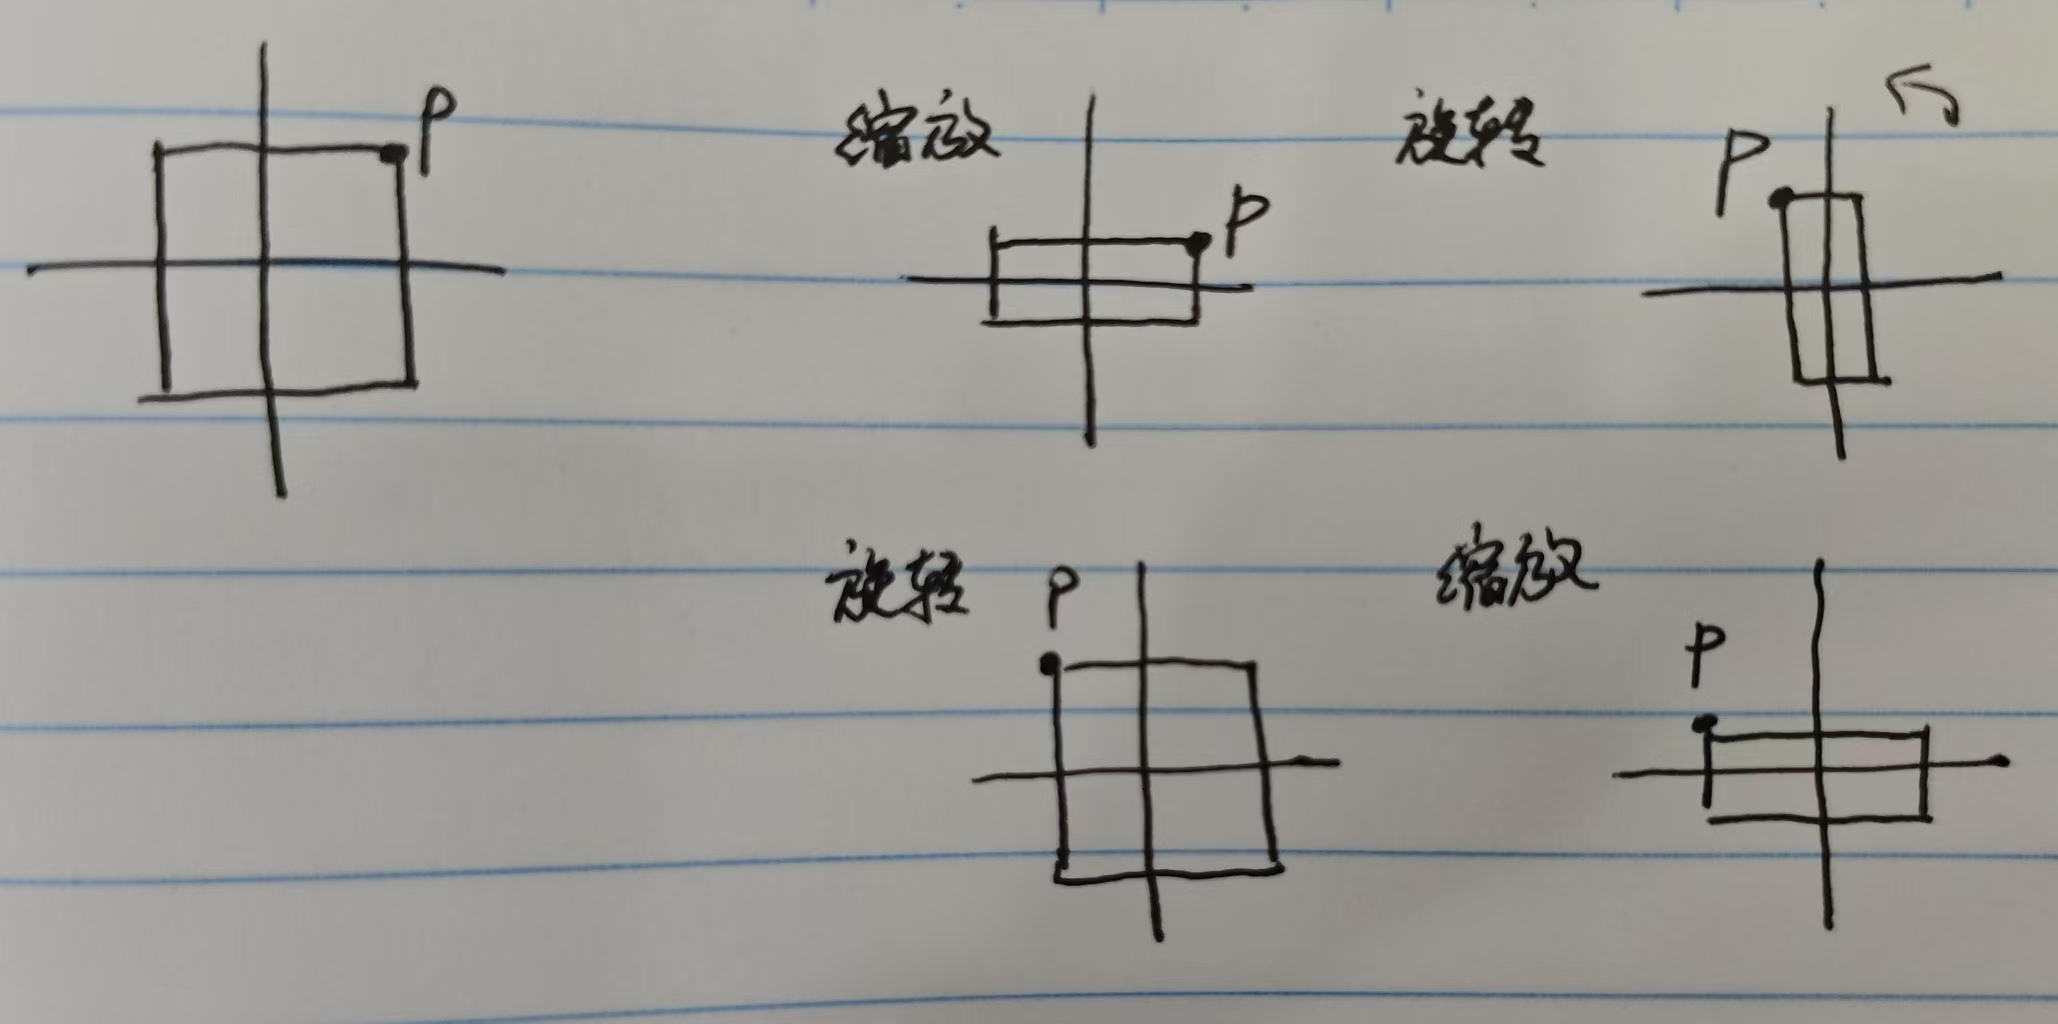 P
缩放 P
旋转 P
旋转 P
缩放 P